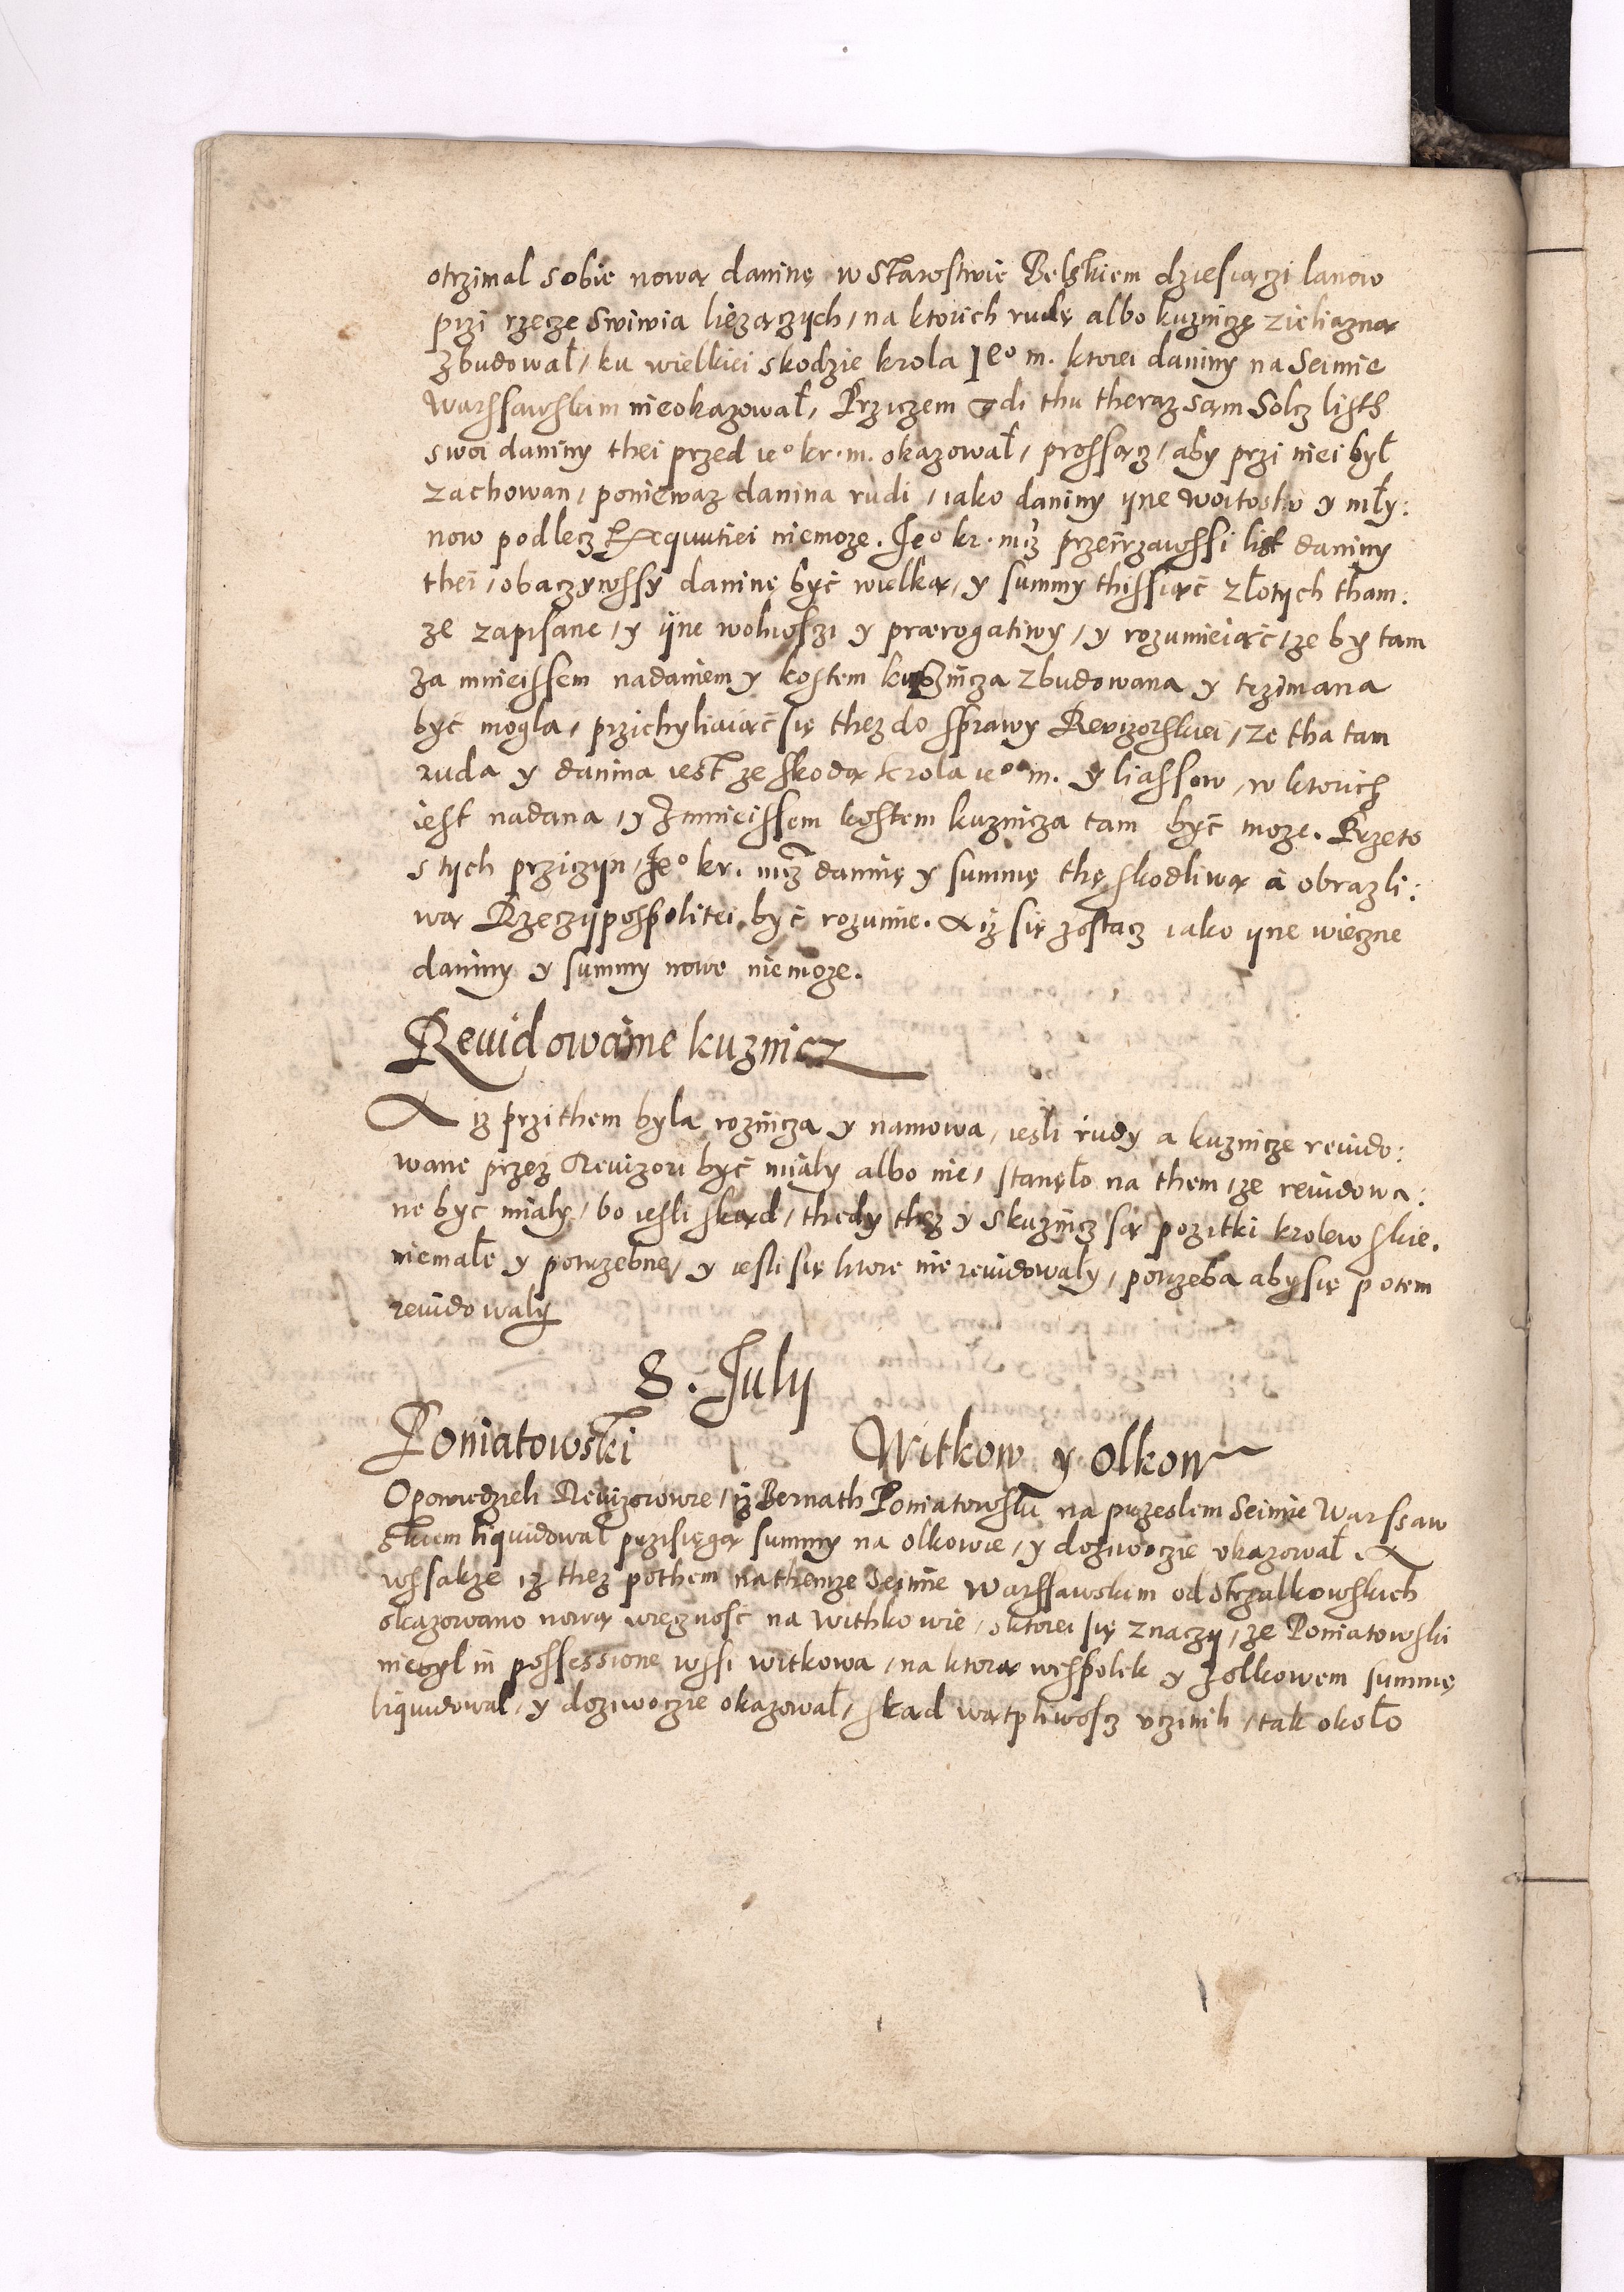 otrzimal sobie nową daninę w Starostwie Belskiem dziesiączi lanow
przi rzecze Swiwia liezączych, na ktorich rudę albo kuzniczę zieliazną
zbudował, ku wielkiei skodzie krola Ie° m. ktorei daniny na Seimie
Warssawskim nieokazował, Przyczem gdi thu theraz sam Solcz listh
swoi daniny thei przed ie° kr. m. okazował, prossącz, aby przi niei był
zachowan, poniewaz danina rudi, iako daniny ÿne woitostw y mły:
now podlecz Exequutiei niemoze. Ie° kr. mcz przeirzawssi list daniny
thei, obaczywssy daninę być wielką, y summy thissiąć złotych tham:
ze zapisane, y ÿne wolnoszi y prærogatiwy, y rozumieiąć, ze by tam
za mnieissem nadaniem y kostem kuznicza zbudowana y trzimana
być mogla, przichyliaiąć się thez do sprawy Revizorskiei, ze tha tam
ruda y danina iest ze skodą krola ie° m. y liassow, w ktorich
iest nadana, y z mnieissem kostem kuznicza tam być moze. Przeto
s tych prziczyn, Ie° kr. mcz daninę y summę thę skodliwą a obrazli:
wą Rzeczypospolitei być rozumie. A iz się zostacz iako ÿne wieczne
daniny y summy nowe niemoze.
Reuidowanie kuznicz
A iz przithem byla roznicza y namowa, iesli rudy a kuznicze reuido:
wane przez Revizori być miały albo nie, stanęło na them, ze reuidowa:
ne być miały, bo iesli skąd, thedy thez y s kuznicz są pozitki krolewskie.
niemałe y potrzebne, y iesli się ktore nie reuidowały, potrzeba aby się potem
reuidowały
8. Iulij
Poniatowski Witkow y Olkow
Opowiedzieli Revizorowie, iz Bernath Poniatowski na przeslem Seimie Warssaw
skiem liquidował przisięgą summy na Olkowie, y dozwoczie okazował. A
wssakze iz thez pothem na themze Seimie Warssawskim od Strzalkowskich
okazowano nową wieczność na Withkowie, s ktorei się znaczy, ze Poniatowski
niebył in possessione wssi Witkowa, na ktorą wespolek y z Olkowem summę
liquidował, y dozwoczie okazował, skąd wątpliwoscz vczinili, tak około